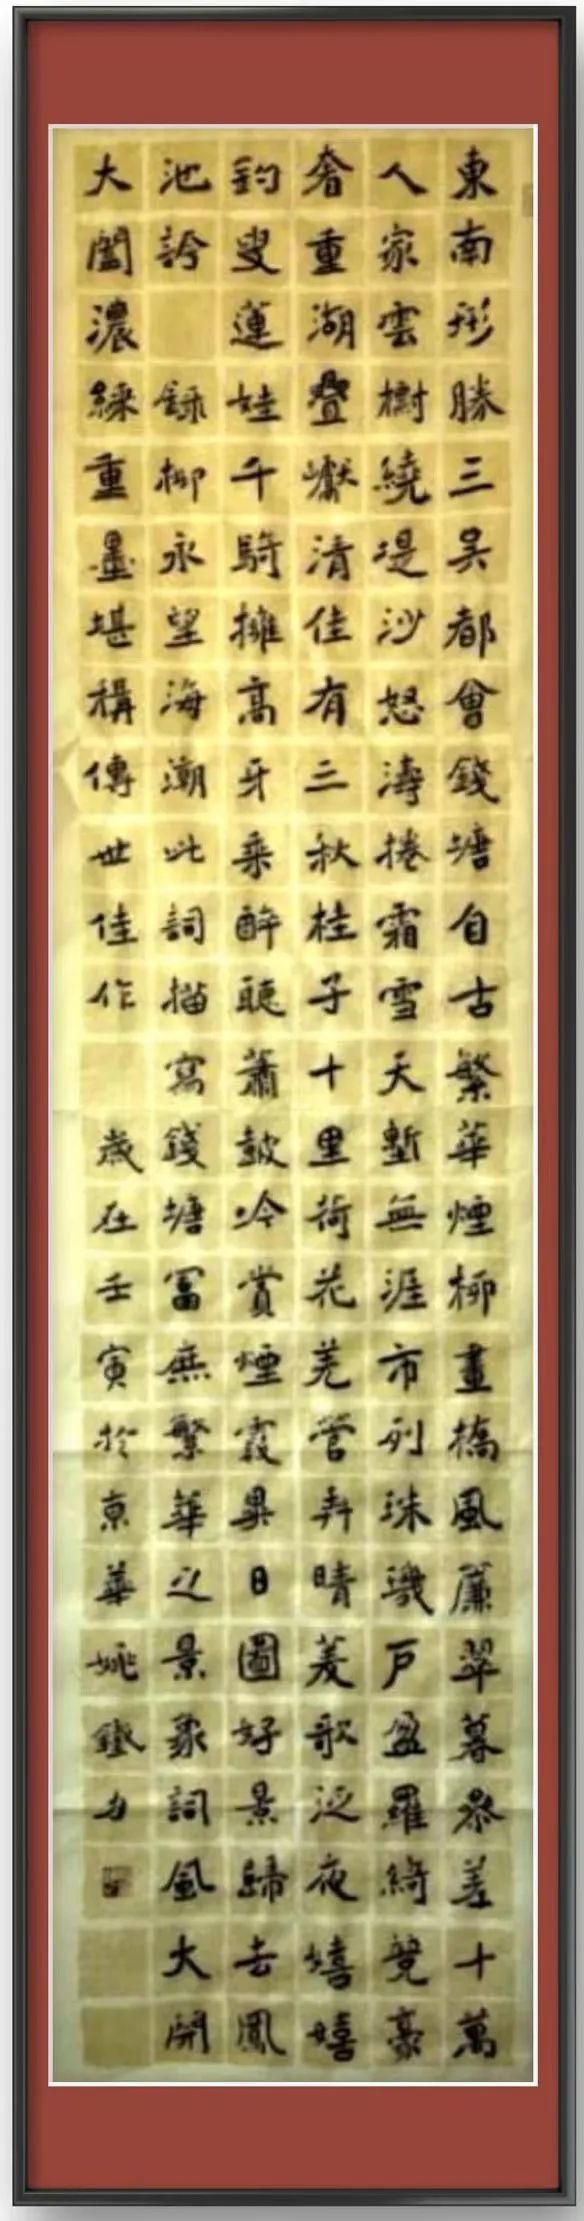 東南形勝三吳都會錢塘自古繁華煙柳畫橋風簾翠幕參差十萬
人家雲樹繞堤沙怒濤捲霜雪天塹無涯市列珠璣戶盈羅綺競豪
奢重湖疊巘清佳有三秋桂子十里荷花羌管弄晴菱歌泛夜嬉嬉
釣叟蓮娃千騎擁高牙乘醉聽蕭鼓吟賞煙霞異日圖好景歸去鳳
池誇 錄柳永望海潮此詞描寫錢塘富庶繁華之景象詞風大開
大闔濃練重墨堪稱傳世佳作 歲在壬寅於京華姚鐵力